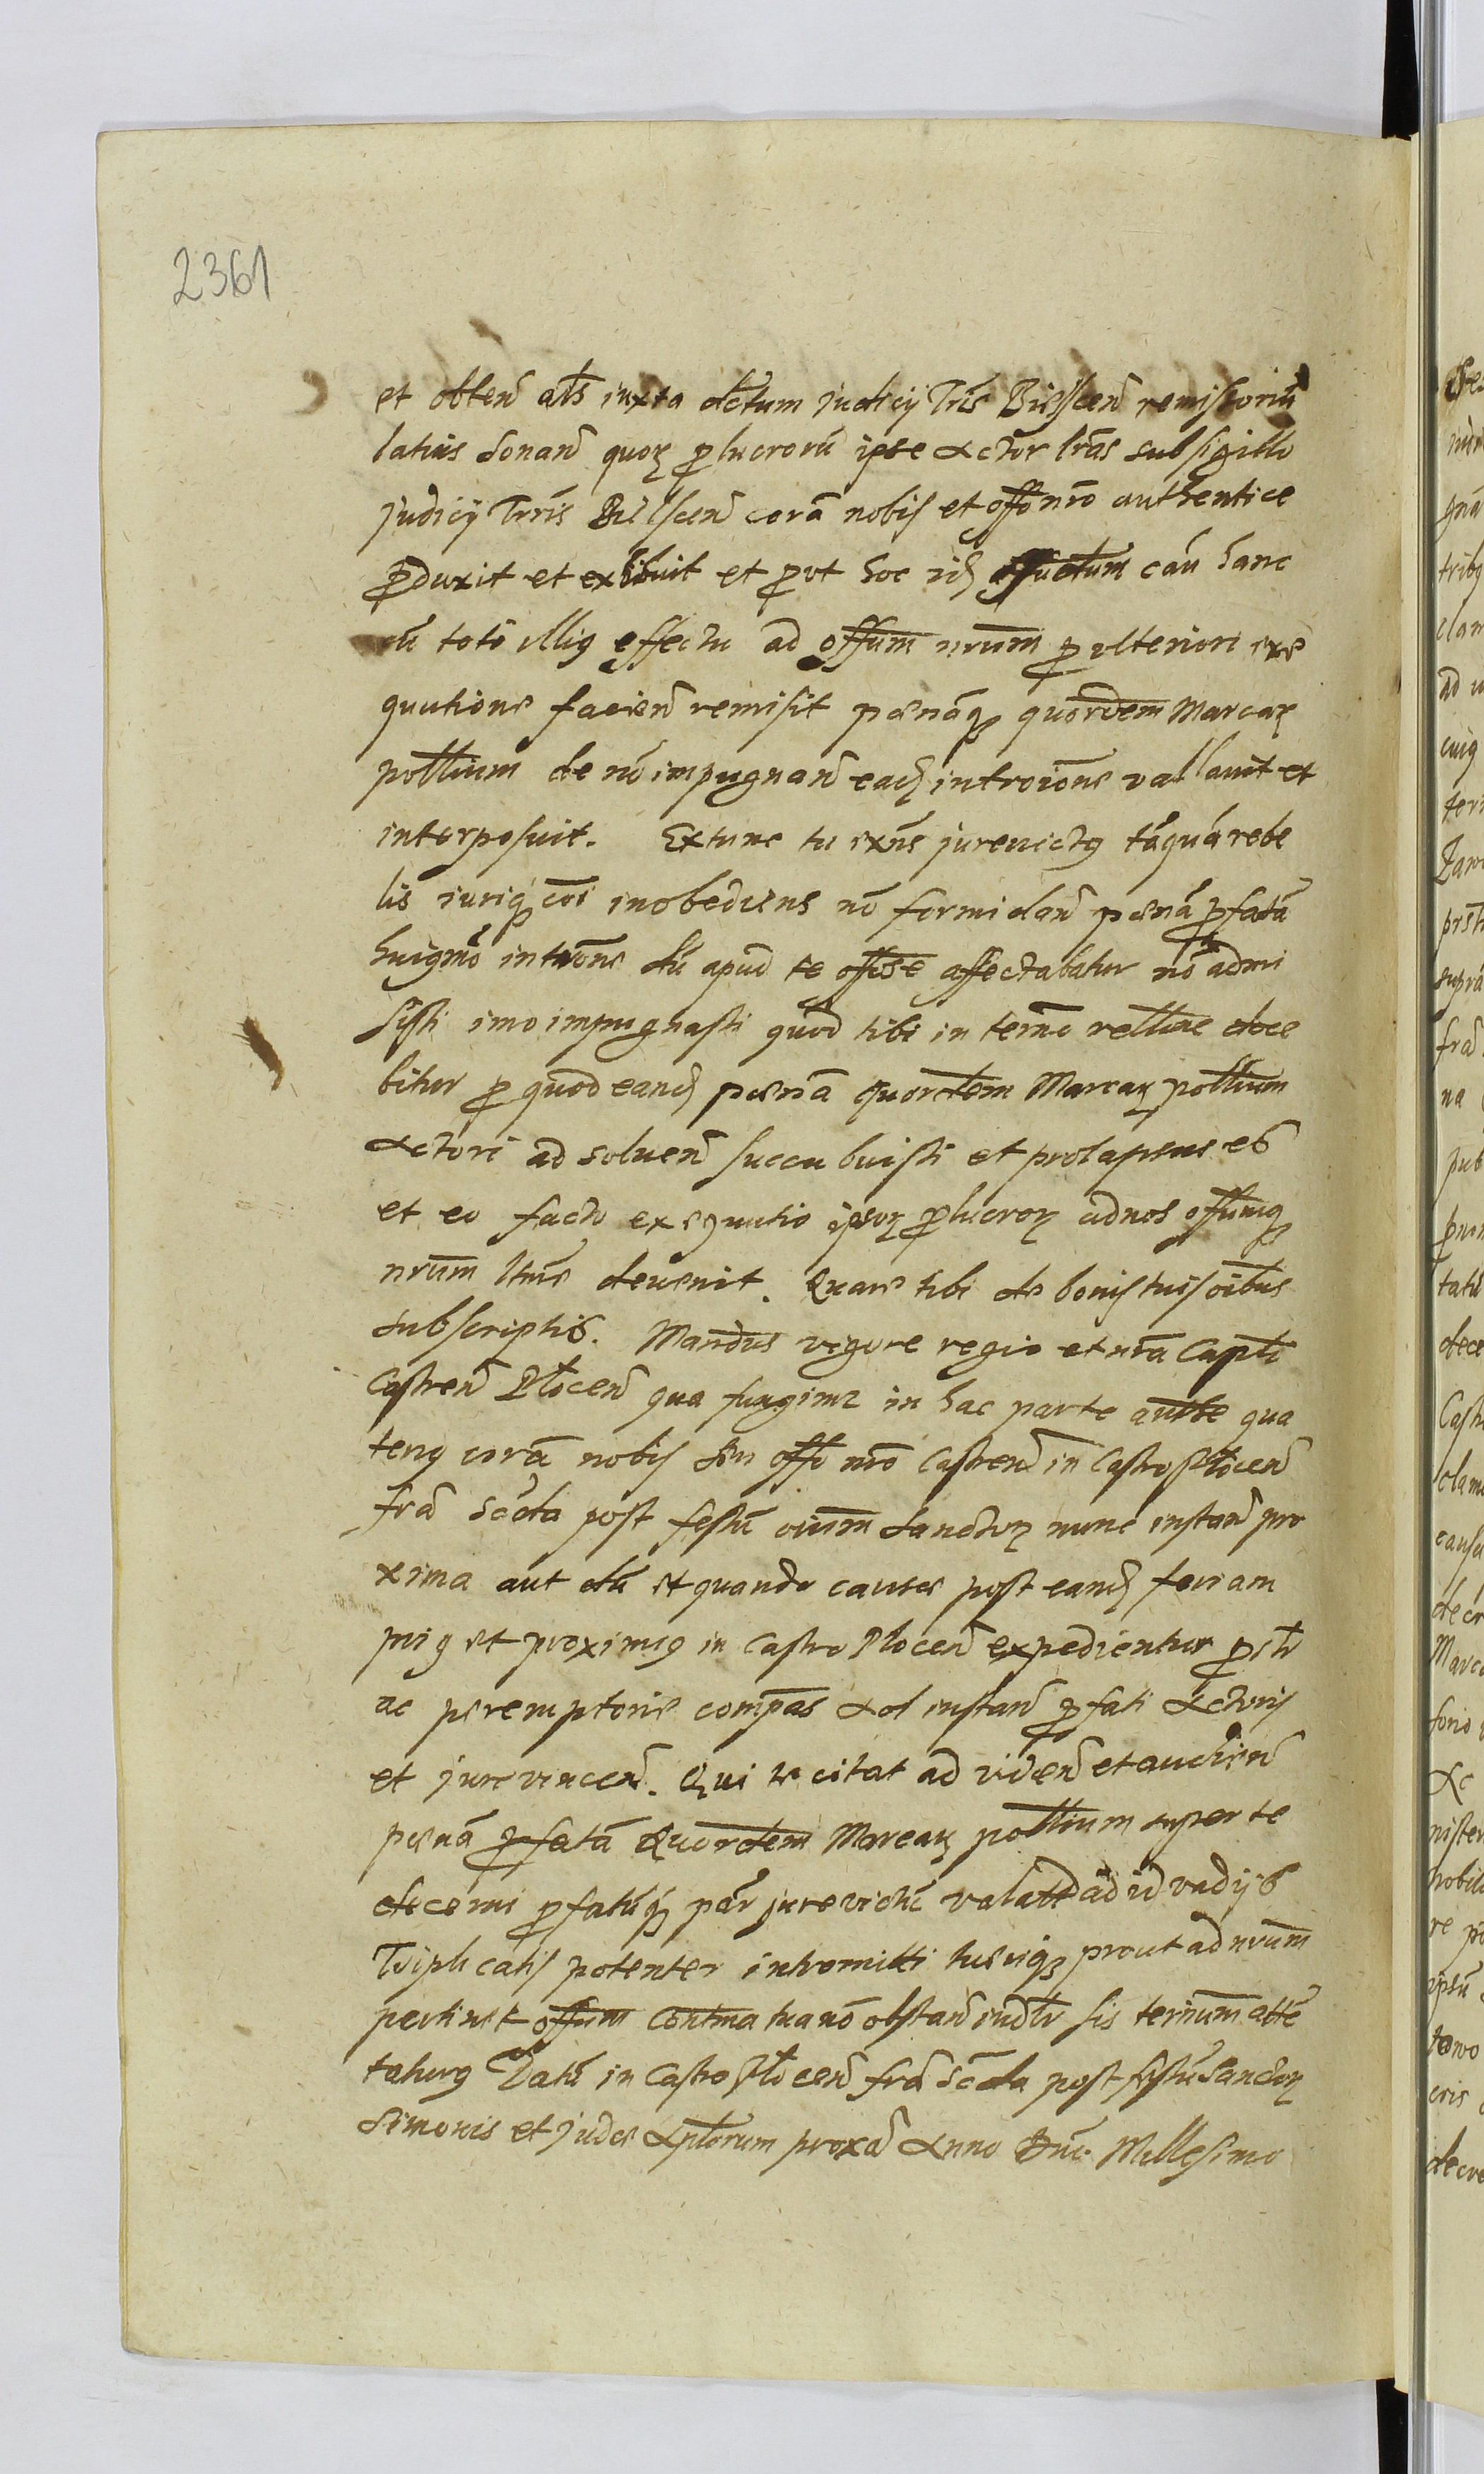 2361
et obten̄ al̄s iuxta dctum judicij Trr̄is Bielscen̄ remissoriū
latius sonan̄ quoꝝ ꝓlucrorū ipse Actor lr̄as sub sigillo
judicij Trr̄is Bielscen̄ corā nobis et offo nr̄o authentice
ꝓduxit et exhibuit et ꝓut hoc cāu hanc
cū toto illiꝰ effectu ad offium nr̄um ꝓ ulteriori exe
quutione facien̄ remisit pœnāqꝫ quordem Marcaꝝ
pollium de nō impugnan̄ eadꝫ introiōne vallauit et
interposuit. Extunc tu exn̄s jurevictꝰ tāquā rebe
lis iuriqꝫ cōi inobediens nō formidan̄ pœnā ꝓfatā
huiꝰmō intrōne dū apud te offiōse affectabatur nō admi
sisti imo impugnasti quod tibi in termō rellone doce
bitur ꝓ quod eandꝫ pœnā quordem Marcaꝝ pollium
Actori ad soluen̄ succubuisti et prolapsus es
et eo facto exequutio ipsoꝝ ꝓlucroꝝ ad nos offiumqꝫ
nr̄um ltīme deuenit. Quare tibi de bonis tuis oībus
subscriptis. Mandus vigore regio et nr̄a Capti
Castren̄ Plocen̄ qua fungimr in hac parte autte qua
tenꝰ corā nobis seu offo nr̄o Castren̄ in Castro Plocen̄
fr̄a scda post festū oium̄ Sanctoꝝ nunc instan̄ pro
xima aut dū et quando causæ post eandꝫ feriam
priꝰ et proximiꝰ in Castro Plocen̄ expedientur ꝑsr̄
ac peremptorie compās Ad instan̄ ꝓfati Actoris
et jurevincen̄. Qui te citat ad viden̄ et audien̄
pœnā ꝓfatā Quordem Marcaꝝ pollium super te
decerni ꝓfatūqꝫ par jurevictū ad id vadijs
Triplicatis potenter intromitti tueriqꝫ prout ad nr̄um
pertinet offium Contma tua nō obstan̄ iudlr sis termum atte
taturꝰ Datū in Castro Plocen̄ fr̄a scda post festū Sanctoꝝ
Simonis et judæ Apłorum proxa Anno Dnī. Millesimo